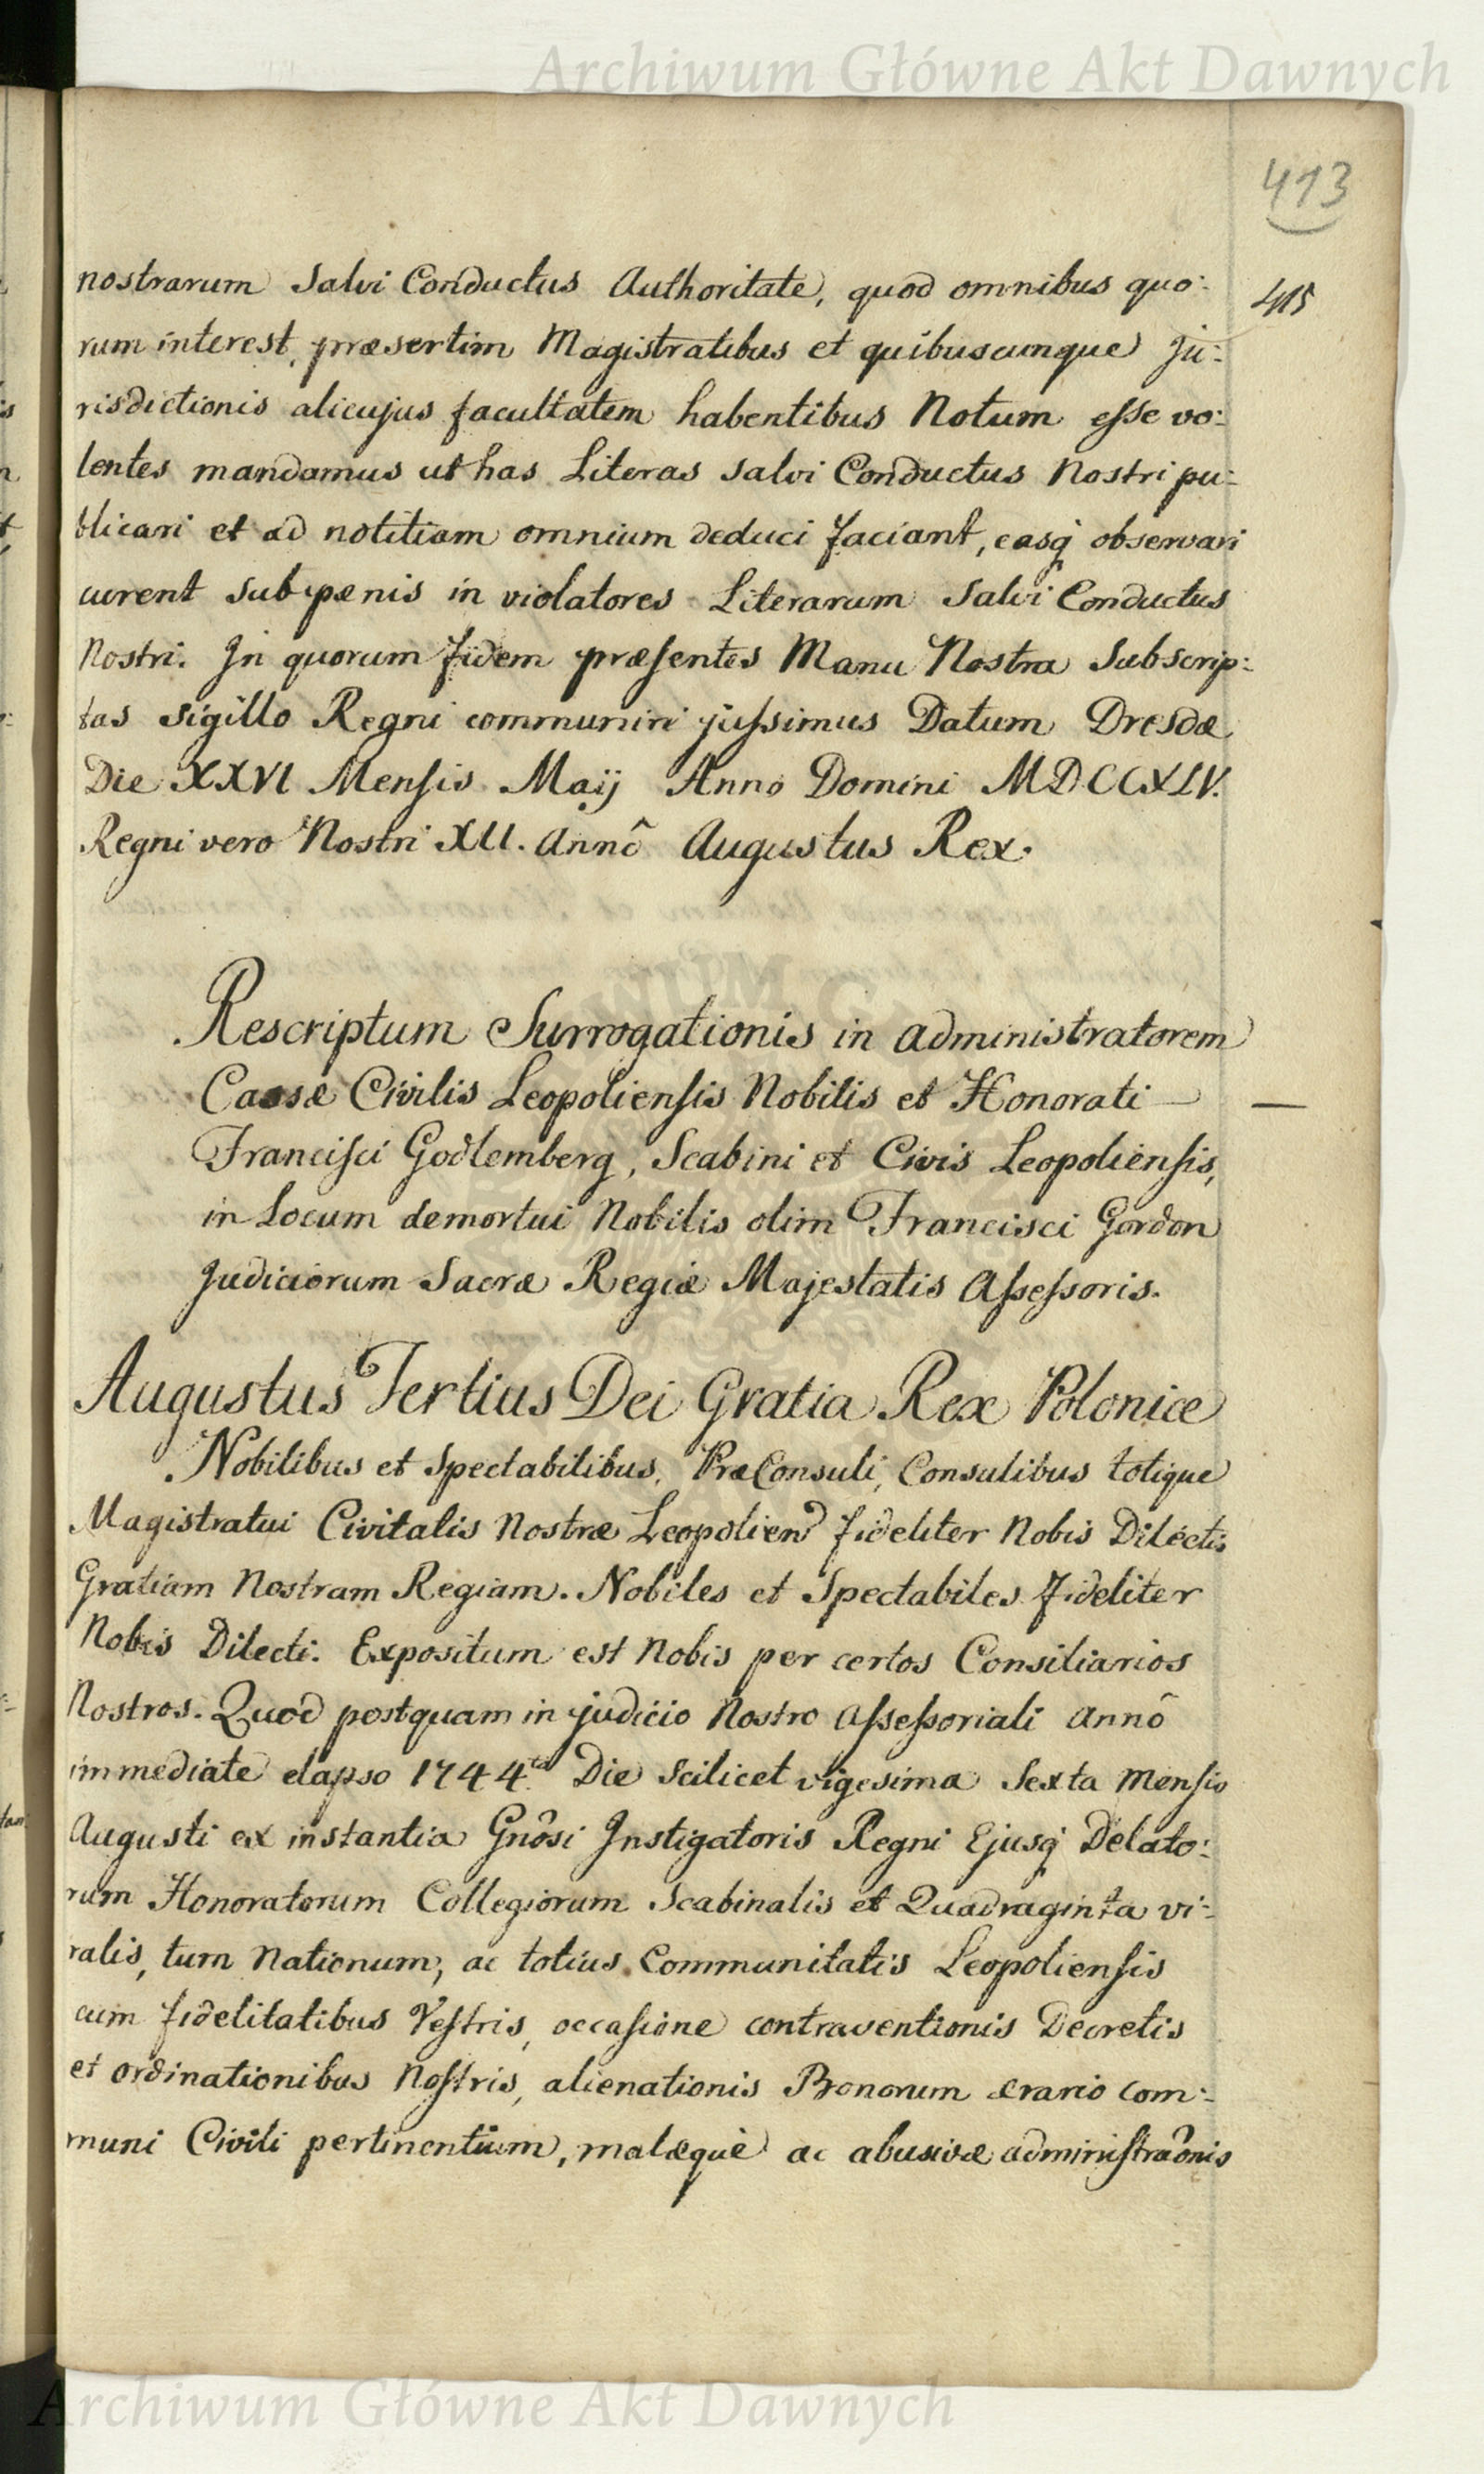 Archiwum Główne Akt Dawnych
413
415
nostrarum Salvi Conductus Authoritate, quod omnibus quo:
rum interest, præsertim Magistratibus et quibuscunque Ju:
risdictionis alicujus facultatem habentibus Notum esse vo:
lentes mandamus ut has Literas Salvi Conductus Nostri pu:
blicari et ad notitiam omnium deduci faciant, easq observari
curent sub pænis in violatores Literarum Salvi Conductus
Nostri. In quorum fidem præsentes Manu Nostra Subscrip:
tas sigillo Regni communiri jussimus Datum Dresdæ
Die XXVI Mensis Maij Anno Domini MDCCXLV.
Regni vero Nostri XII. Annô Augustus Rex.
Rescriptum Surrogationis in administratorem
Cassæ Civilis Leopoliensis Nobilis et Honorati —
Francisci Godlemberg, Scabini et Civis Leopoliensis,
in Locum demortui Nobilis olim Francisci Gordon
Judiciorum Sacræ Regiæ Majestatis Assessoris.
Augustus Tertius Dei Gratia Rex Poloniæ
Nobilibus et Spectabilibus, PræConsuli, Consulibus totique
Magistratui Civitatis Nostræ Leopolien fideliter Nobis Dilectis
Gratiam Nostram Regiam. Nobiles et Spectabiles Fideliter
Nobis Dilecti. Expositum est Nobis per certos Consiliarios
Nostros. Quod postquam in judicio Nostro Assessoriali Annô
immediate elapso 1744to Die Scilicet vigesima Sexta Mensis
Augusti ex instantia Gnôsi Instigatoris Regni Ejusq Delato:
rum Honoratorum Collegiorum Scabinalis et Quadraginta vi:
ralis, tum Nationum, ac totius Communitatis Leopoliensis
cum fidelitatibus Vestris, occasione contraventionis Decretis
et ordinationibus Nostris, alienationis Bonorum ærario com:
muni Civili pertinentium, malæquè ac abusivæ administraônis
Archiwum Główne Akt Dawnych